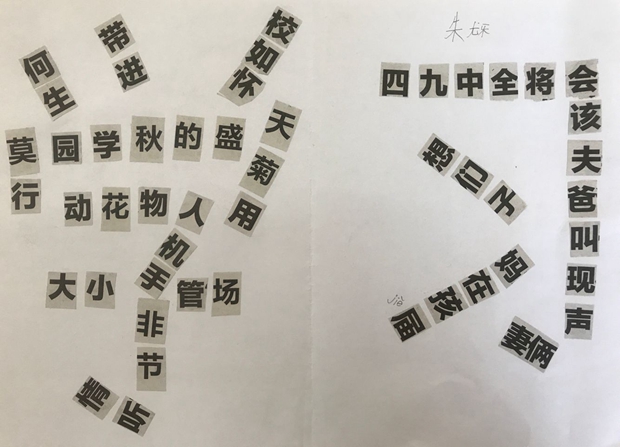 带进
校如怀
何生
莫园学秋的盛天
行
菊用
动花物人
机手非节
大小管场
情听
朱
四九中全将会
该夫爸叫现声
们子
届孩在妈
妻俩